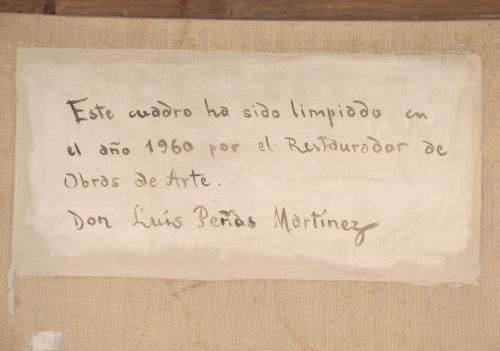 Este cuadro ha sido limpiado en
el año 1960 por el Restaurador de
Obras de Arte.
Don Luis Peñas Martínez